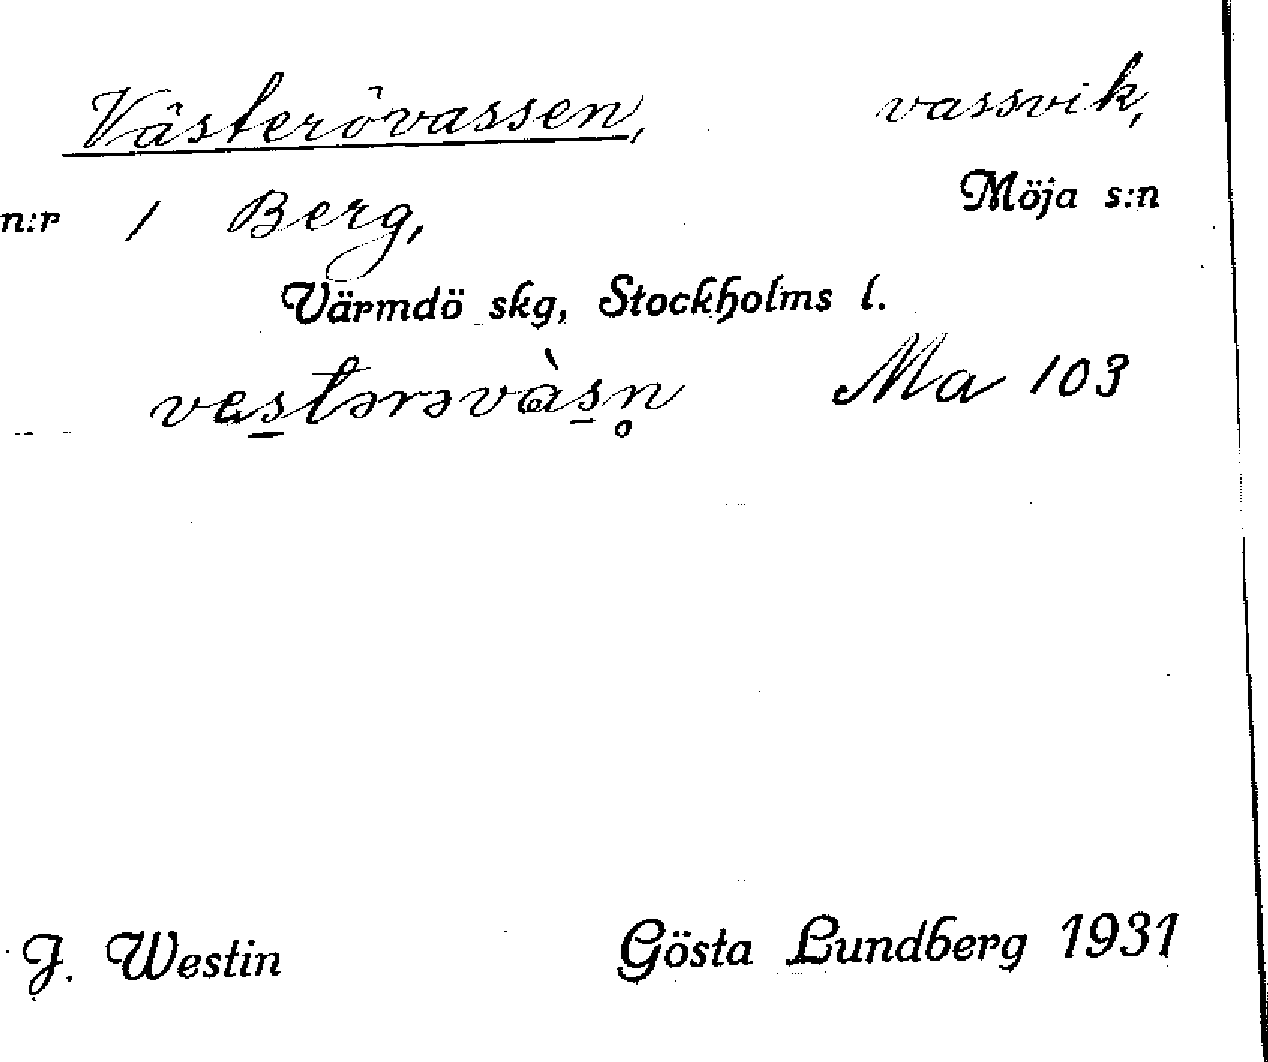 Västerövassen, vassvik,
Möja s:n
n:r 1 Berg,
Värmdö skg, Stockholms l.
vestərəvàs̠n̥ Ma 103
J. Westin Gösta Lundberg 1931